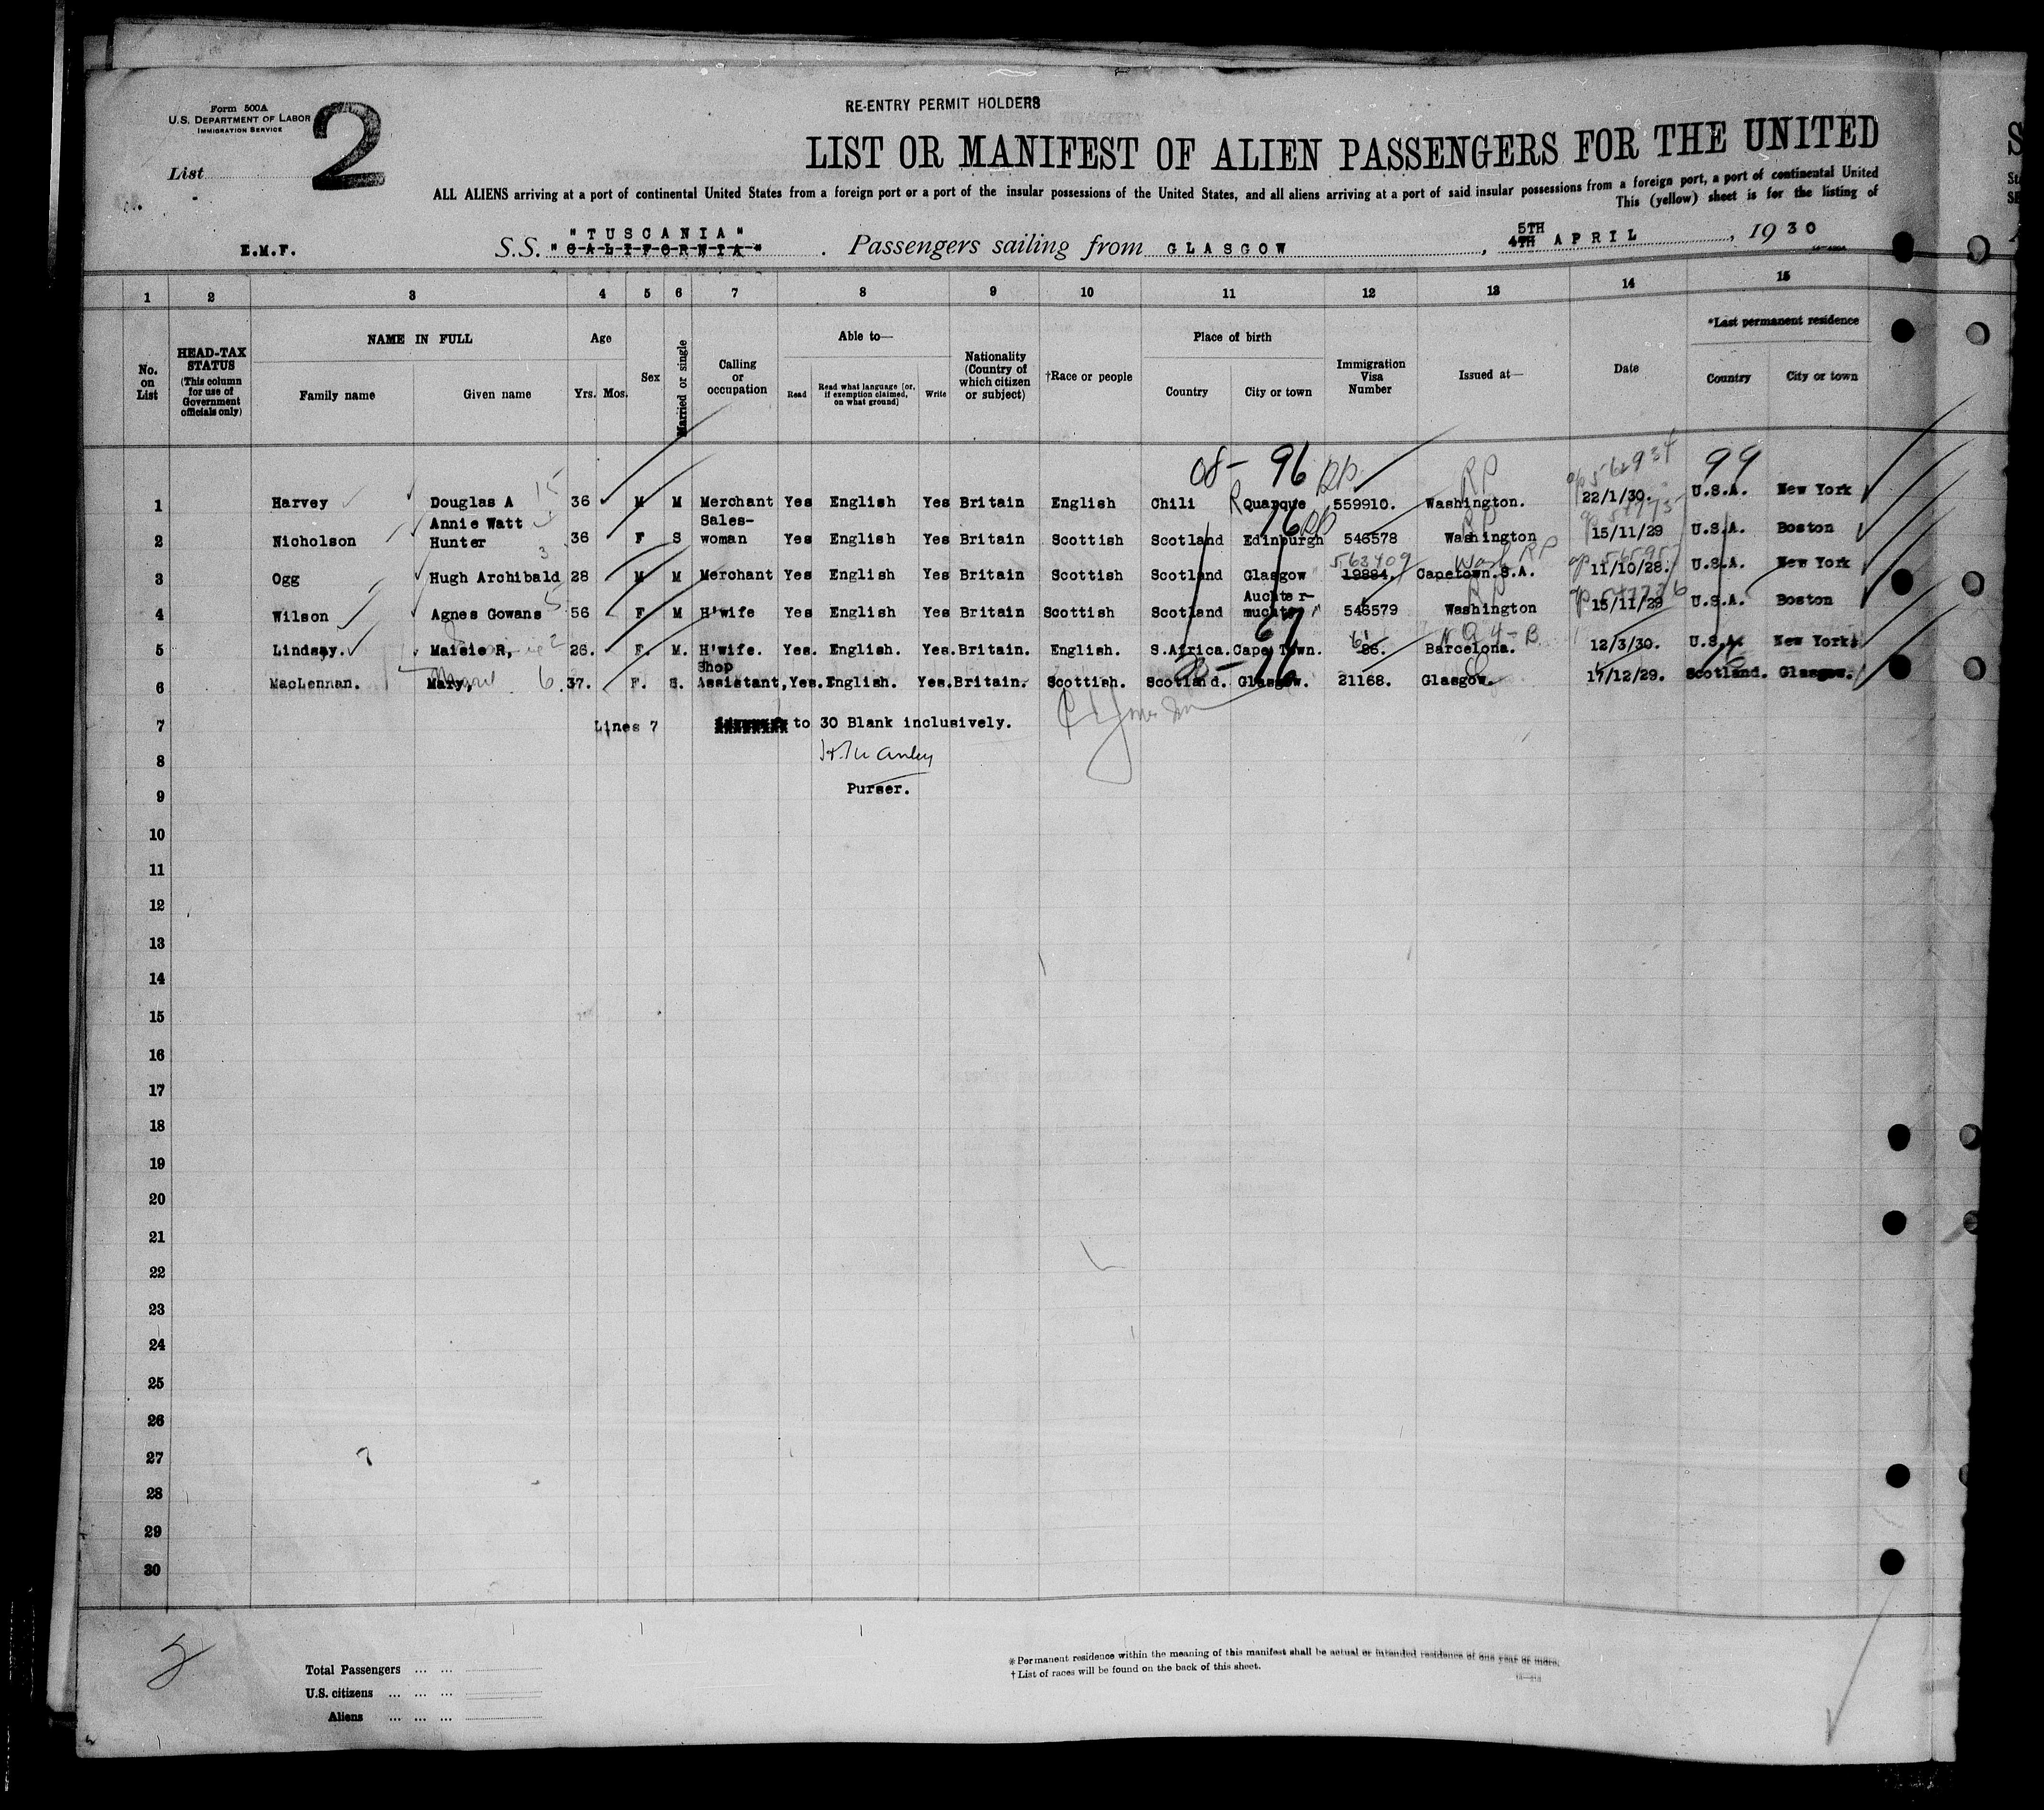 Form 500A
U.S. DEPARTMENT OF LABOR
IMMIGRATION SERVICE
2
List
RE-ENTRY PERMIT HOLDERS
LIST OR MANIFEST OF ALIEN PASSENGERS FOR THE UNITED
ALL ALIENS arriving at a port of continental United States from a foreign port or a port of the insular possessions of the United States, and all aliens arriving at a port of said insular possessions from a foreign port, a port of continental United
This (yellow) sheet is for the listing of
E.M.F.
"TUSCANIA"
S.S. "CALIFORNIA". Passengers sailing from GLASGOW, 5TH 4TH APRIL, 1930
1 2 3 4 5 6 7 8 9 10 11 12 13 14 15
No. on List
HEAD-TAX STATUS (This column for use of Government officials only)
NAME IN FULL
Family name Given name
Age
Yrs. Mos.
Sex
Married or single
Calling or occupation
Able to—
Read Read what language (or, if exemption claimed, on what ground) Write
Nationality (Country of which citizen or subject)
†Race or people
Place of birth
Country City or town
Immigration Visa Number
Issued at—
Date
*Last permanent residence
Country City or town
08- 96 RP RP 99
1 Harvey Douglas A 15 36 M M Merchant Yes English Yes Britain English Chili Quarque 559910. Washington. 22/1/30. U.S.A. New York
2 Nicholson Annie Watt Hunter 36 F S Sales-woman Yes English Yes Britain Scottish Scotland Edinburgh 546578 Washington 15/11/29 U.S.A. Boston
563409 Wash RP
3 Ogg Hugh Archibald 28 M M Merchant Yes English Yes Britain Scottish Scotland Glasgow 19884. Capetown.S.A. 11/10/28. U.S.A. New York
4 Wilson Agnes Gowans 5 56 F M H'wife Yes English Yes Britain Scottish Scotland Auchtermuchty 546579 Washington 15/11/29 U.S.A. Boston
5 Lindsay. Maisie R, 2 26. F. M. H'wife. Yes. English. Yes. Britain. English. S.Africa. Cape Town. Barcelona. 12/3/30. U.S.A. New York.
6 MacLennan. Mary, 6 37. F. S. Shop Assistant, Yes. English. Yes. Britain. Scottish. Scotland. Glasgow. 21168. Glasgow. 17/12/29. Scotland. Glasgow.
7 Lines 7 to 30 Blank inclusively.
8
9 Purser.
10
11
12
13
14
15
16
17
18
19
20
21
22
23
24
25
26
27
28
29
30
Total Passengers ... ...
U.S. citizens ... ... ...
Aliens ... ... ...
* Permanent residence within the meaning of this manifest shall be actual or intended residence of one year or more.
† List of races will be found on the back of this sheet.